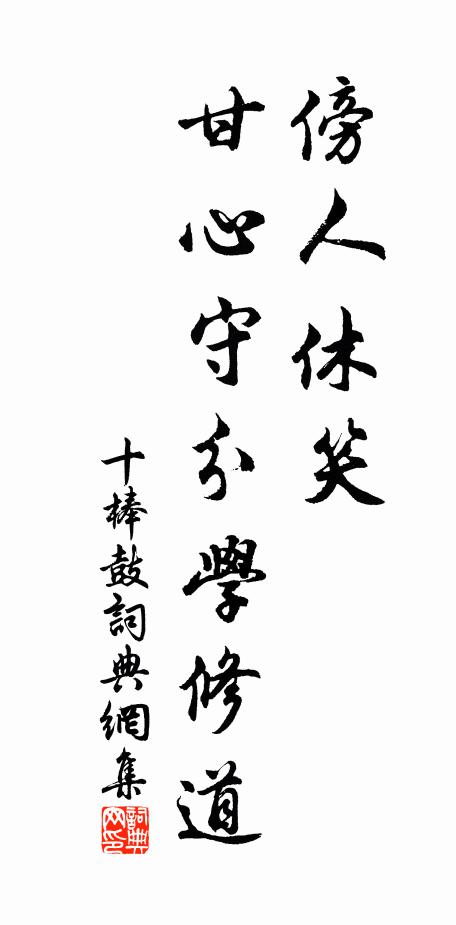 傍人休笑
甘心守分學修道
十棒鼓詞典網集
詞典網印